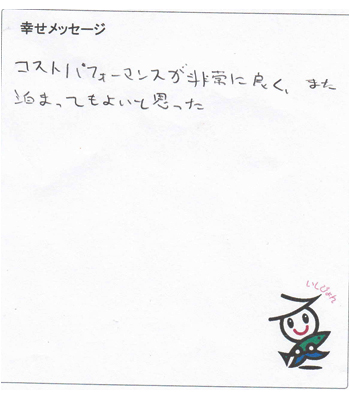 幸せメッセージ
コストパフォーマンスが非常に良く、また
泊まってもよいと思った
いしぴょん